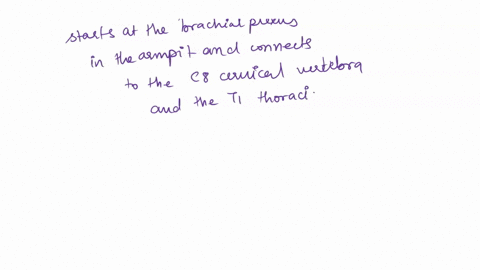 starts at the brachial plexus
in the armpit and connects
to the C8 cervical vertebra
and the T1 thoraci.